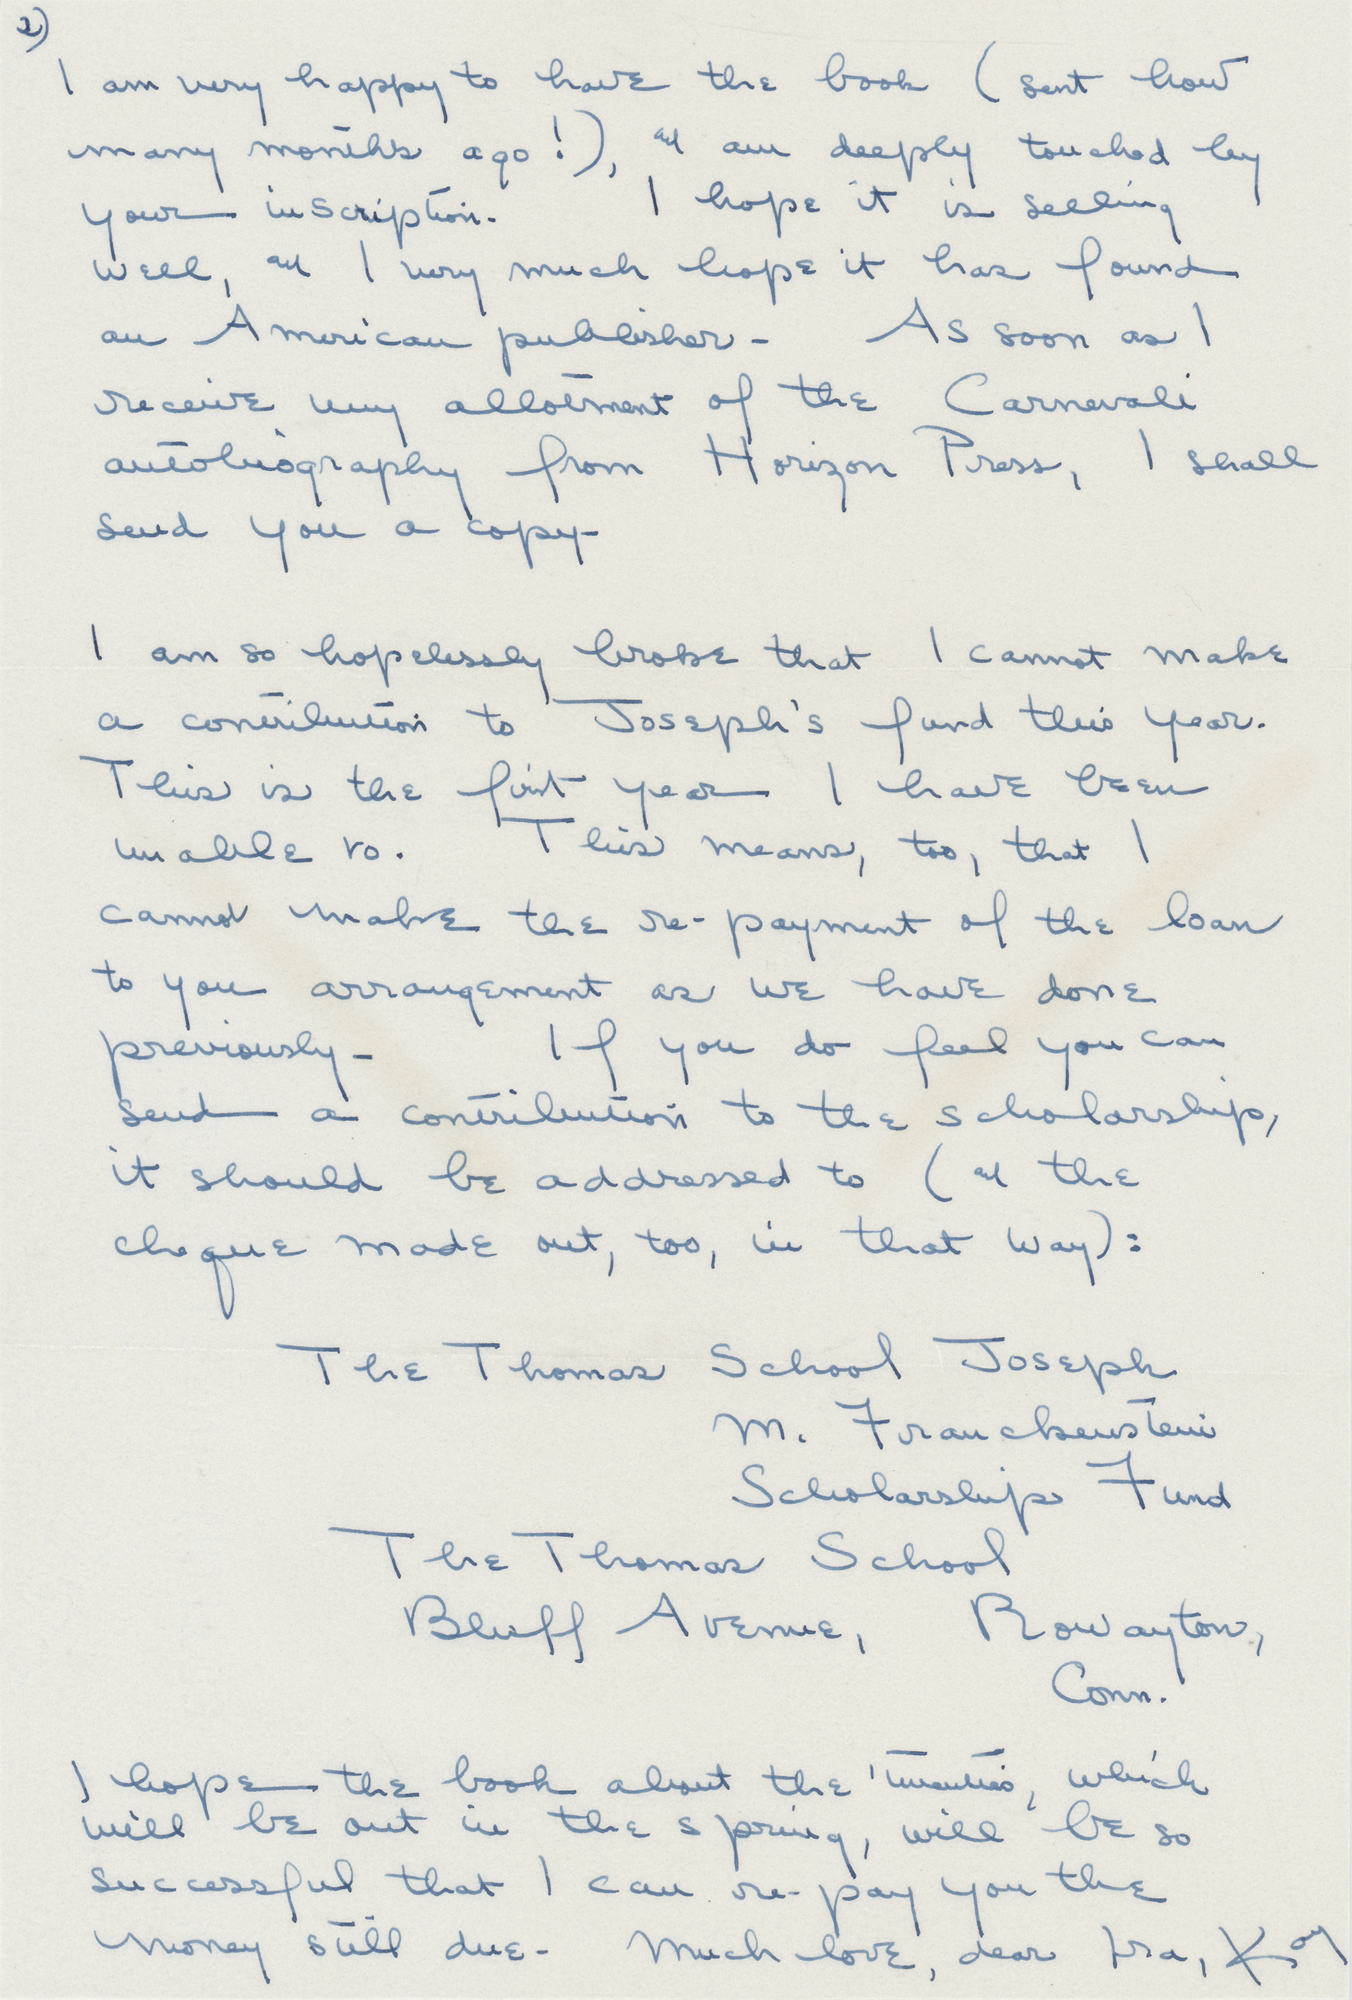 2)
I am very happy to have the book (sent how
many months ago!), and am deeply touched by
your inscription. I hope it is selling
well, and I very much hope it has found
an American publisher - As soon as I
receive my allotment of the Carnevali
autobiography from Horizon Press, I shall
send you a copy -
I am so hopelessly broke that I cannot make
a contribution to Joseph's fund this year.
This is the first year I have been
unable to. This means, too, that I
cannot make the re-payment of the loan
to you arrangement as we have done
previously - If you do feel you can
send a contribution to the scholarship,
it should be addressed to (and the
cheque made out, too, in that way):
The Thomas School Joseph
M. Franckenstein
Scholarship Fund
The Thomas School
Bluff Avenue, Rowayton,
Conn.
I hope the book about the 'twenties, which
will be out in the spring, will be so
successful that I can re-pay you the
money still due - Much love, dear Ira, Kay